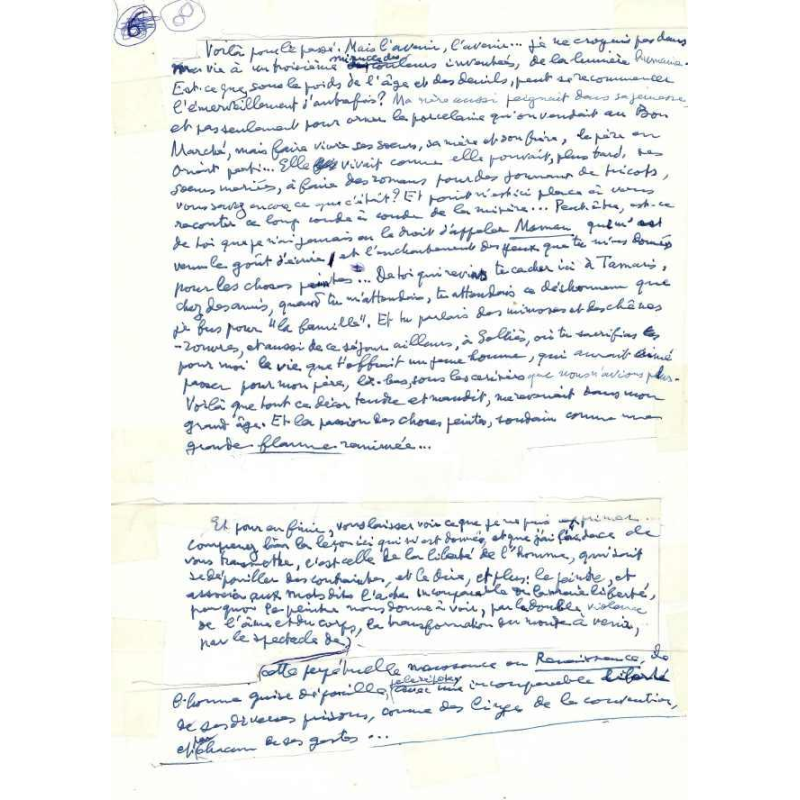 6 8
Voilà pour le passé. Mais l'avenir, l'avenir... je ne croyais pas dans
ma vie à un troisième couleurs inventées, de la lumière humaine.
Est-ce que, sous le poids de l'âge et des deuils, peut se recommencer
l'émerveillement d'autrefois? Ma mère aussi peignait dans sa jeunesse
et pas seulement pour orner la porcelaine qu'on vendait au Bon
Marché, mais faire vivre ses soeurs, sa mère et son frère, le père en
Orient parti... Elle vivait comme elle pouvait, plus tard, ses
soeurs mariées, à faire des romans pour des journaux de tricots,
vous savez encore ce que c'était? Et point n'est ici place à vous
raconter ce long coude à coude de la misère... Peut-être, est-ce
de toi que je n'ai jamais eu le droit d'appeler Maman, qui m'est
venu le goût d'écrire, et l'enchantement des yeux que tu m'as donnés
pour les choses peintes... De toi qui revins te cacher ici à Tamaris,
chez des amis, quand tu m'attendais, tu attendais ce déshonneur que
je fus pour "la famille". Et tu parlais des mimosas et des chênes
-rouvres, et aussi de ce séjour ailleurs, à Solliès, où tu sacrifias les
pour moi la vie que t'offrait un jeune homme, qui aurait aimé
passer pour mon père, là-bas, sous les cerisiers que nous n'avions plus.
Voilà que tout ce décor tendre et maudit, me revenait dans mon
grand âge. Et la passion des choses peintes, soudain comme une
grande flamme ranimée...
Et pour en finir, vous laisser voir ce que je ne puis exprimer...
comprenez bien la leçon ici qui m'est donnée, et que j'ai l'audace de
vous transmettre, c'est celle de la liberté de l'homme, qui sait
se dépouiller des contraintes, et le dire, et plus: le peindre, et
associer aux mots dits l'acte incomparable de la vraie liberté,
par quoi le peintre nous donne à voir, par la double violence
de l'âme et du corps, la transformation du monde à venir,
par le spectacle de
cette perpétuelle naissance ou Renaissance, de
l'homme qui se dépouille, incomparable liberté
de ses diverses prisons, comme des linges de la convention,
et chacun de ses gestes...